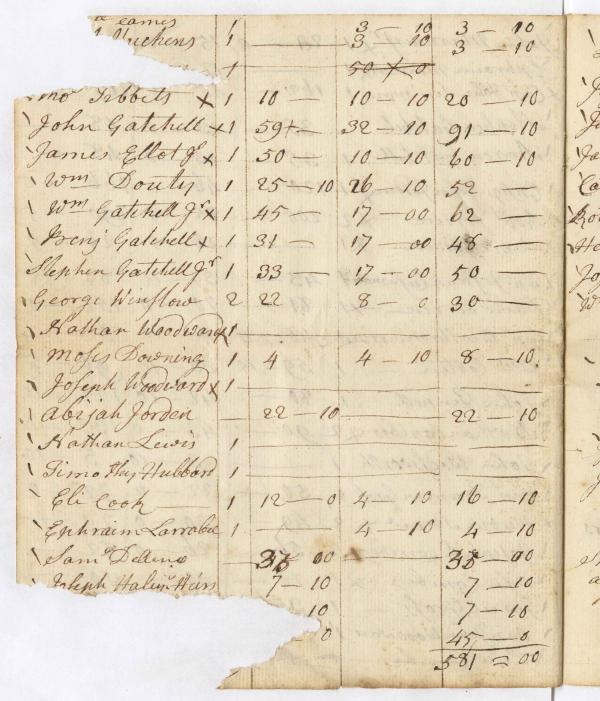 eames 1 3 — 10 3 — 10
Huckens 1 — 3 10 3 — 10
1 — 50 — 0
Tibbets x 1 10 — 10 — 10 20 — 10
John Gatchell x 1 59 — 32 — 10 91 — 10
James Ellot Jr x 1 50 — 10 — 10 60 — 10
Wm Douty 1 25 — 10 26 — 10 52 —
Wm Gatchell Jr x 1 45 — 17 — 00 62 —
Benj Gatchell x 1 31 — 17 — 00 48 —
Stephen Gatchell Jr 1 33 — 17 — 00 50 —
George Winslow 2 22 8 — 0 30 —
Nathan Woodward x 1 — — —
Moses Downing 1 4 4 — 10 8 — 10
Joseph Woodward x 1 — — —
Abijah Jorden — 22 — 10 — 22 — 10
Nathan Lewis 1 — — —
Timothy Hubbard 1 — — —
Eli Cook — 1 12 — 0 4 — 10 16 — 10
Ephraim Larrabee 1 — 4 — 10 4 — 10
Saml — 00 — 00
Joseph 7 — 10 7 — 10
10 7 — 10
0 45 — 0
581 = 00